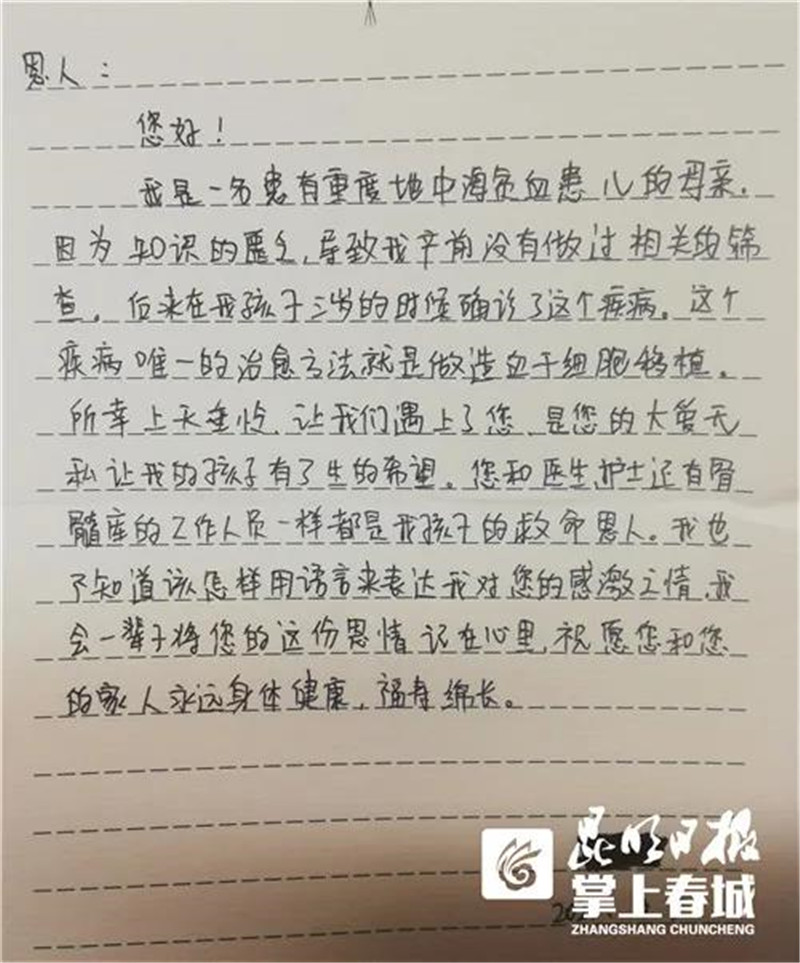 恩人：
您好！
我是一名患有重度地中海贫血患儿的母亲.
因为知识的匮乏,导致我产前没有做过相关的筛
查。后来在我孩子三岁的时候确诊了这个疾病。这个
疾病唯一的治愈方法就是做造血干细胞移植。
所幸上天垂怜,让我们遇上了您,是您的大爱无
私让我的孩子有了生的希望。您和医生护士还有骨
髓库的工作人员一样都是我孩子的救命恩人。我也
不知道该怎样用语言来表达我对您的感激之情,我
会一辈子将您的这份恩情记在心里,祝愿您和您
的家人永远身体健康,福寿绵长。
昆明日报
掌上春城
ZHANGSHANG CHUNCHENG